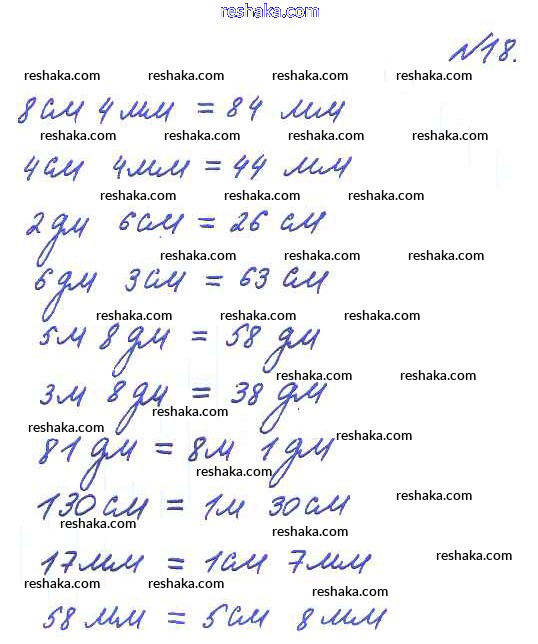 reshaka.com
№18.
reshaka.com reshaka.com reshaka.com reshaka.com
8 см 4 мм = 84 мм
reshaka.com reshaka.com reshaka.com reshaka.com
4 см 4 мм = 44 мм
reshaka.com reshaka.com reshaka.com
2 дм 6 см = 26 см
reshaka.com reshaka.com reshaka.com
6 дм 3 см = 63 см
reshaka.com reshaka.com reshaka.com
5 м 8 дм = 58 дм
reshaka.com reshaka.com
3 м 8 дм = 38 дм
reshaka.com
reshaka.com
81 дм = 8 м 1 дм
reshaka.com
130 см = 1 м 30 см
reshaka.com
reshaka.com
reshaka.com
17 мм = 1 см 7 мм
reshaka.com
reshaka.com reshaka.com reshaka.com
58 мм = 5 см 8 мм